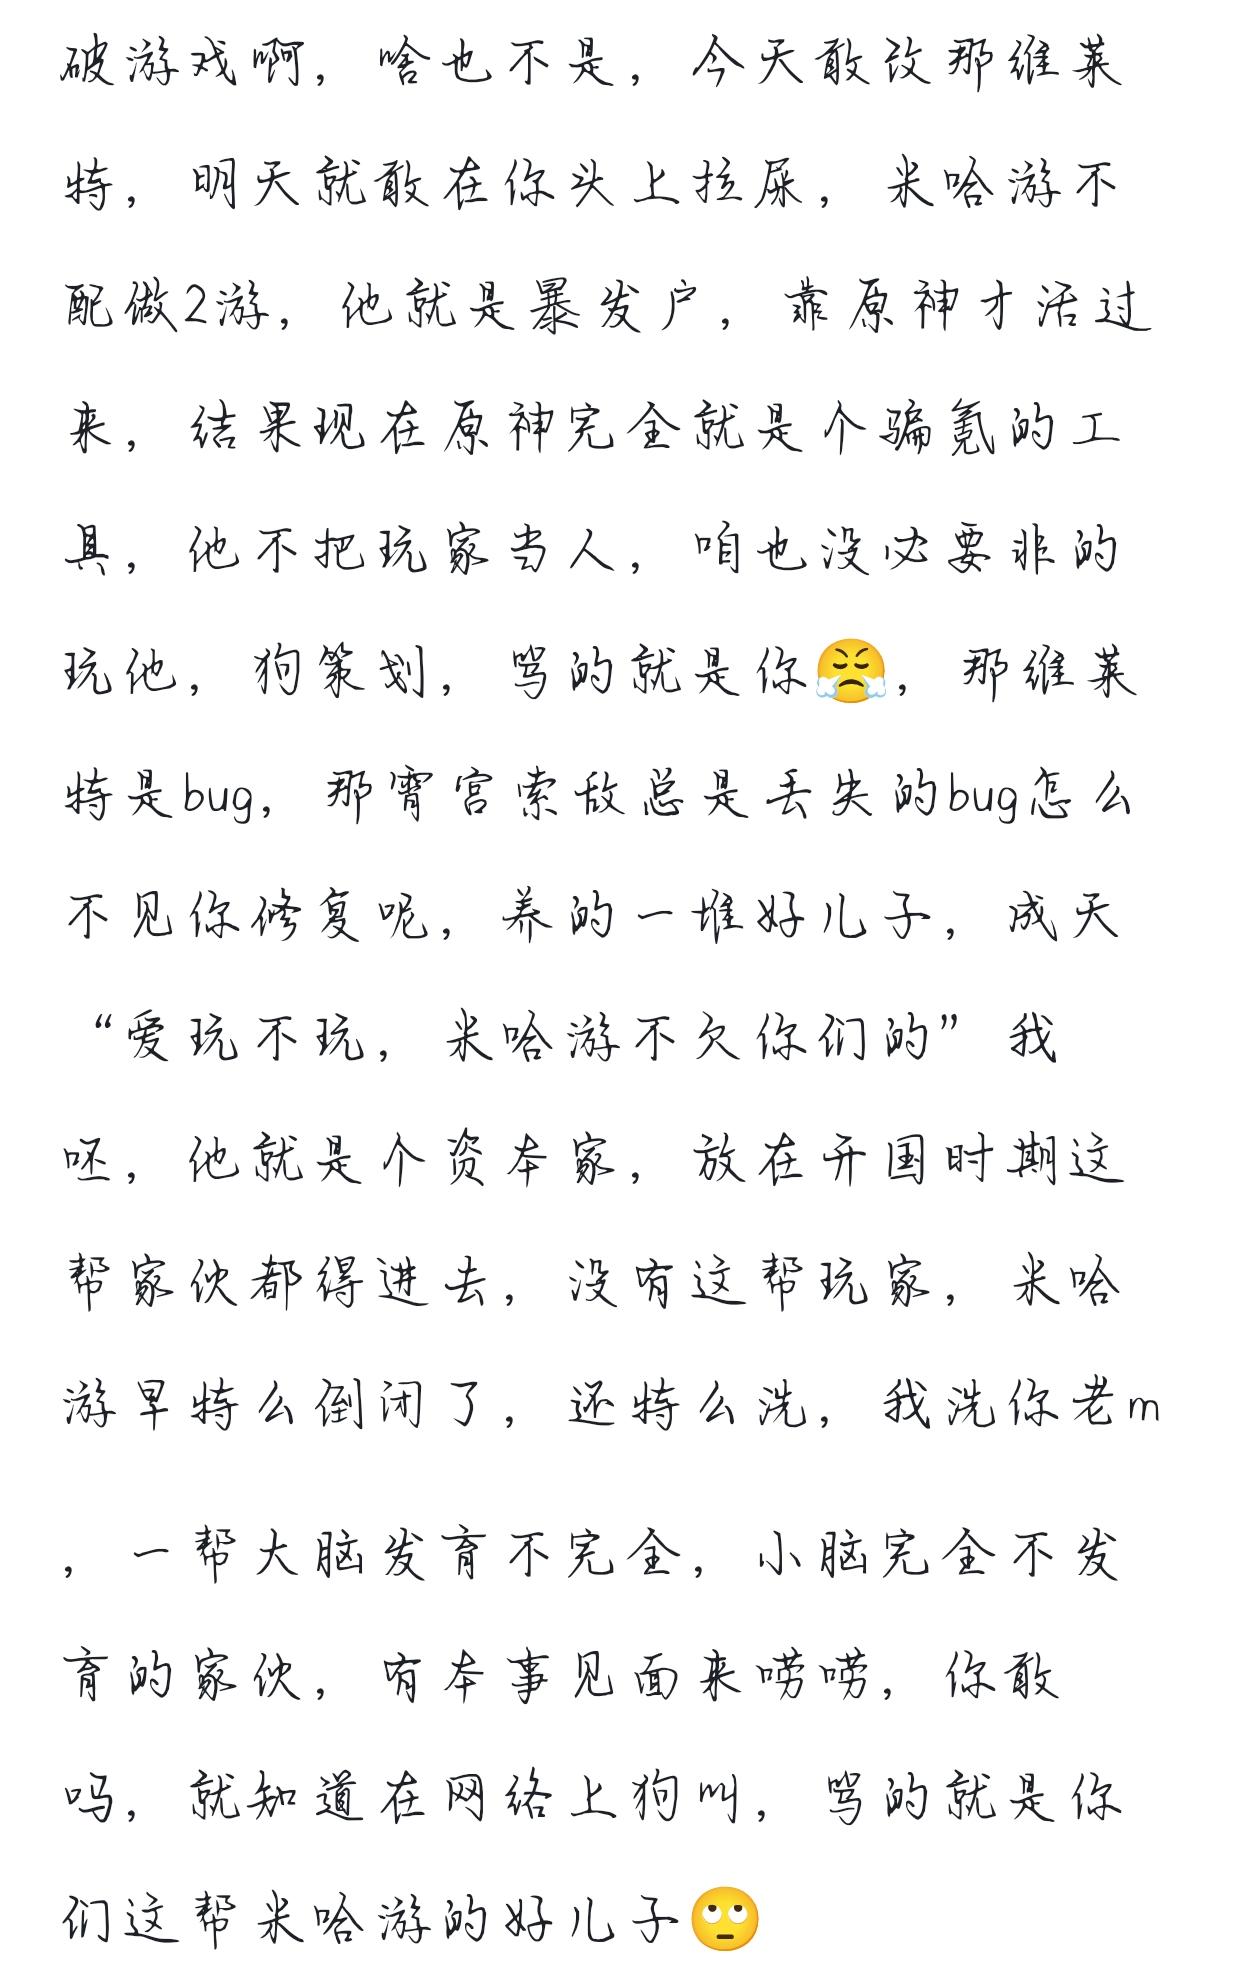 破游戏啊，啥也不是，今天敢改那维莱
特，明天就敢在你头上拉屎，米哈游不
配做2游，他就是暴发户，靠原神才活过
来，结果现在原神完全就是个骗氪的工
具，他不把玩家当人，咱也没必要非的
玩他，狗策划，骂的就是你😤，那维莱
特是bug，那霄宫索敌总是丢失的bug怎么
不见你修复呢，养的一堆好儿子，成天
“爱玩不玩，米哈游不欠你们的”我
呸，他就是个资本家，放在开国时期这
帮家伙都得进去，没有这帮玩家，米哈
游早特么倒闭了，还特么洗，我洗你老m
，一帮大脑发育不完全，小脑完全不发
育的家伙，有本事见面来唠唠，你敢
吗，就知道在网络上狗叫，骂的就是你
们这帮米哈游的好儿子🙄